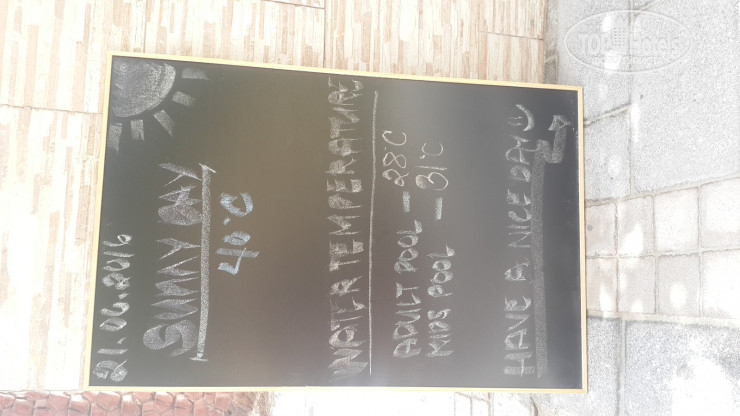 21.06.2016
SUNNY DAY
40°C
WATER TEMPERATURE
ADULT POOL — 28°C
KIDS POOL — 31°C
HAVE A NICE DAY